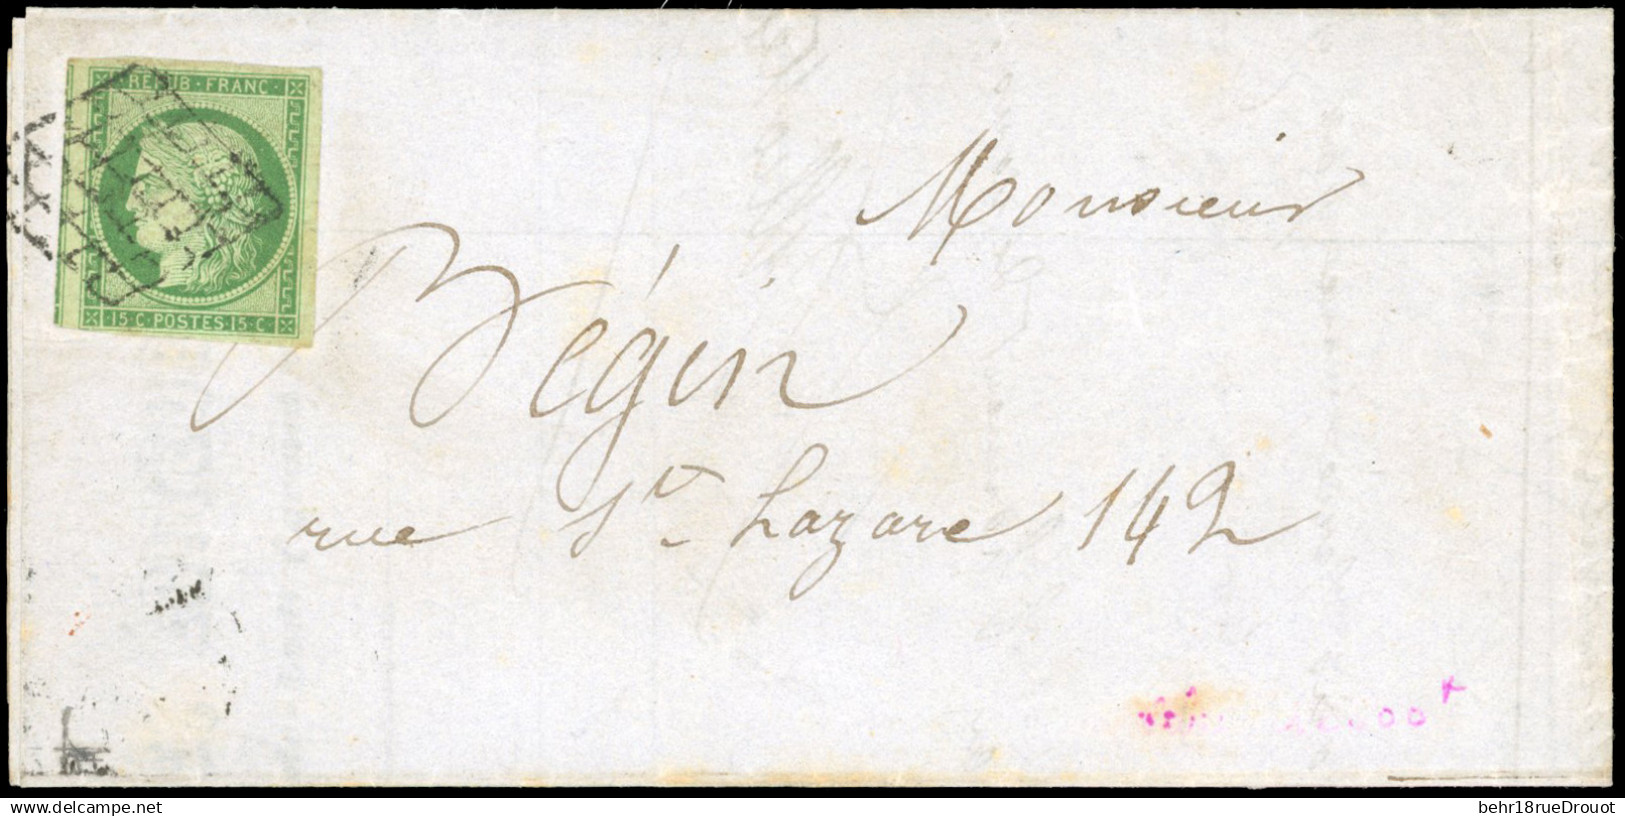 REPUB · FRANC ·
· 15 · C · POSTES · 15 · C ·
Monsieur
Bégin
rue St Lazare 142
www.delcampe.net
behr18rueDrouot